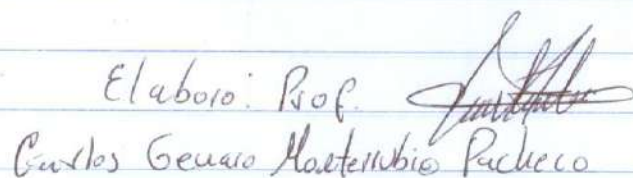 Elaboro: Prof.
Carlos Genaro Monterrubio Pacheco